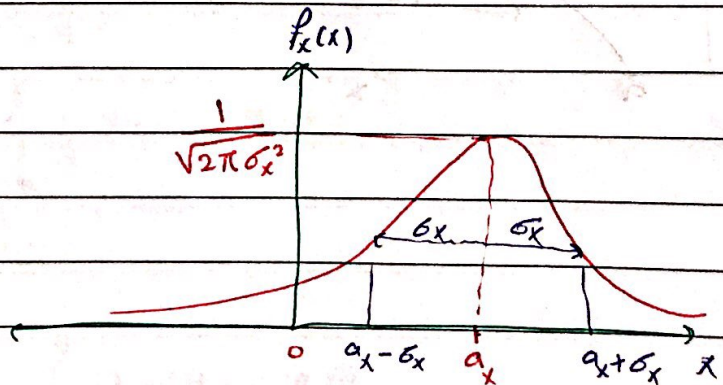 fx(x)
1
√2πσx²
σx σx
0 ax-σx ax ax+σx x